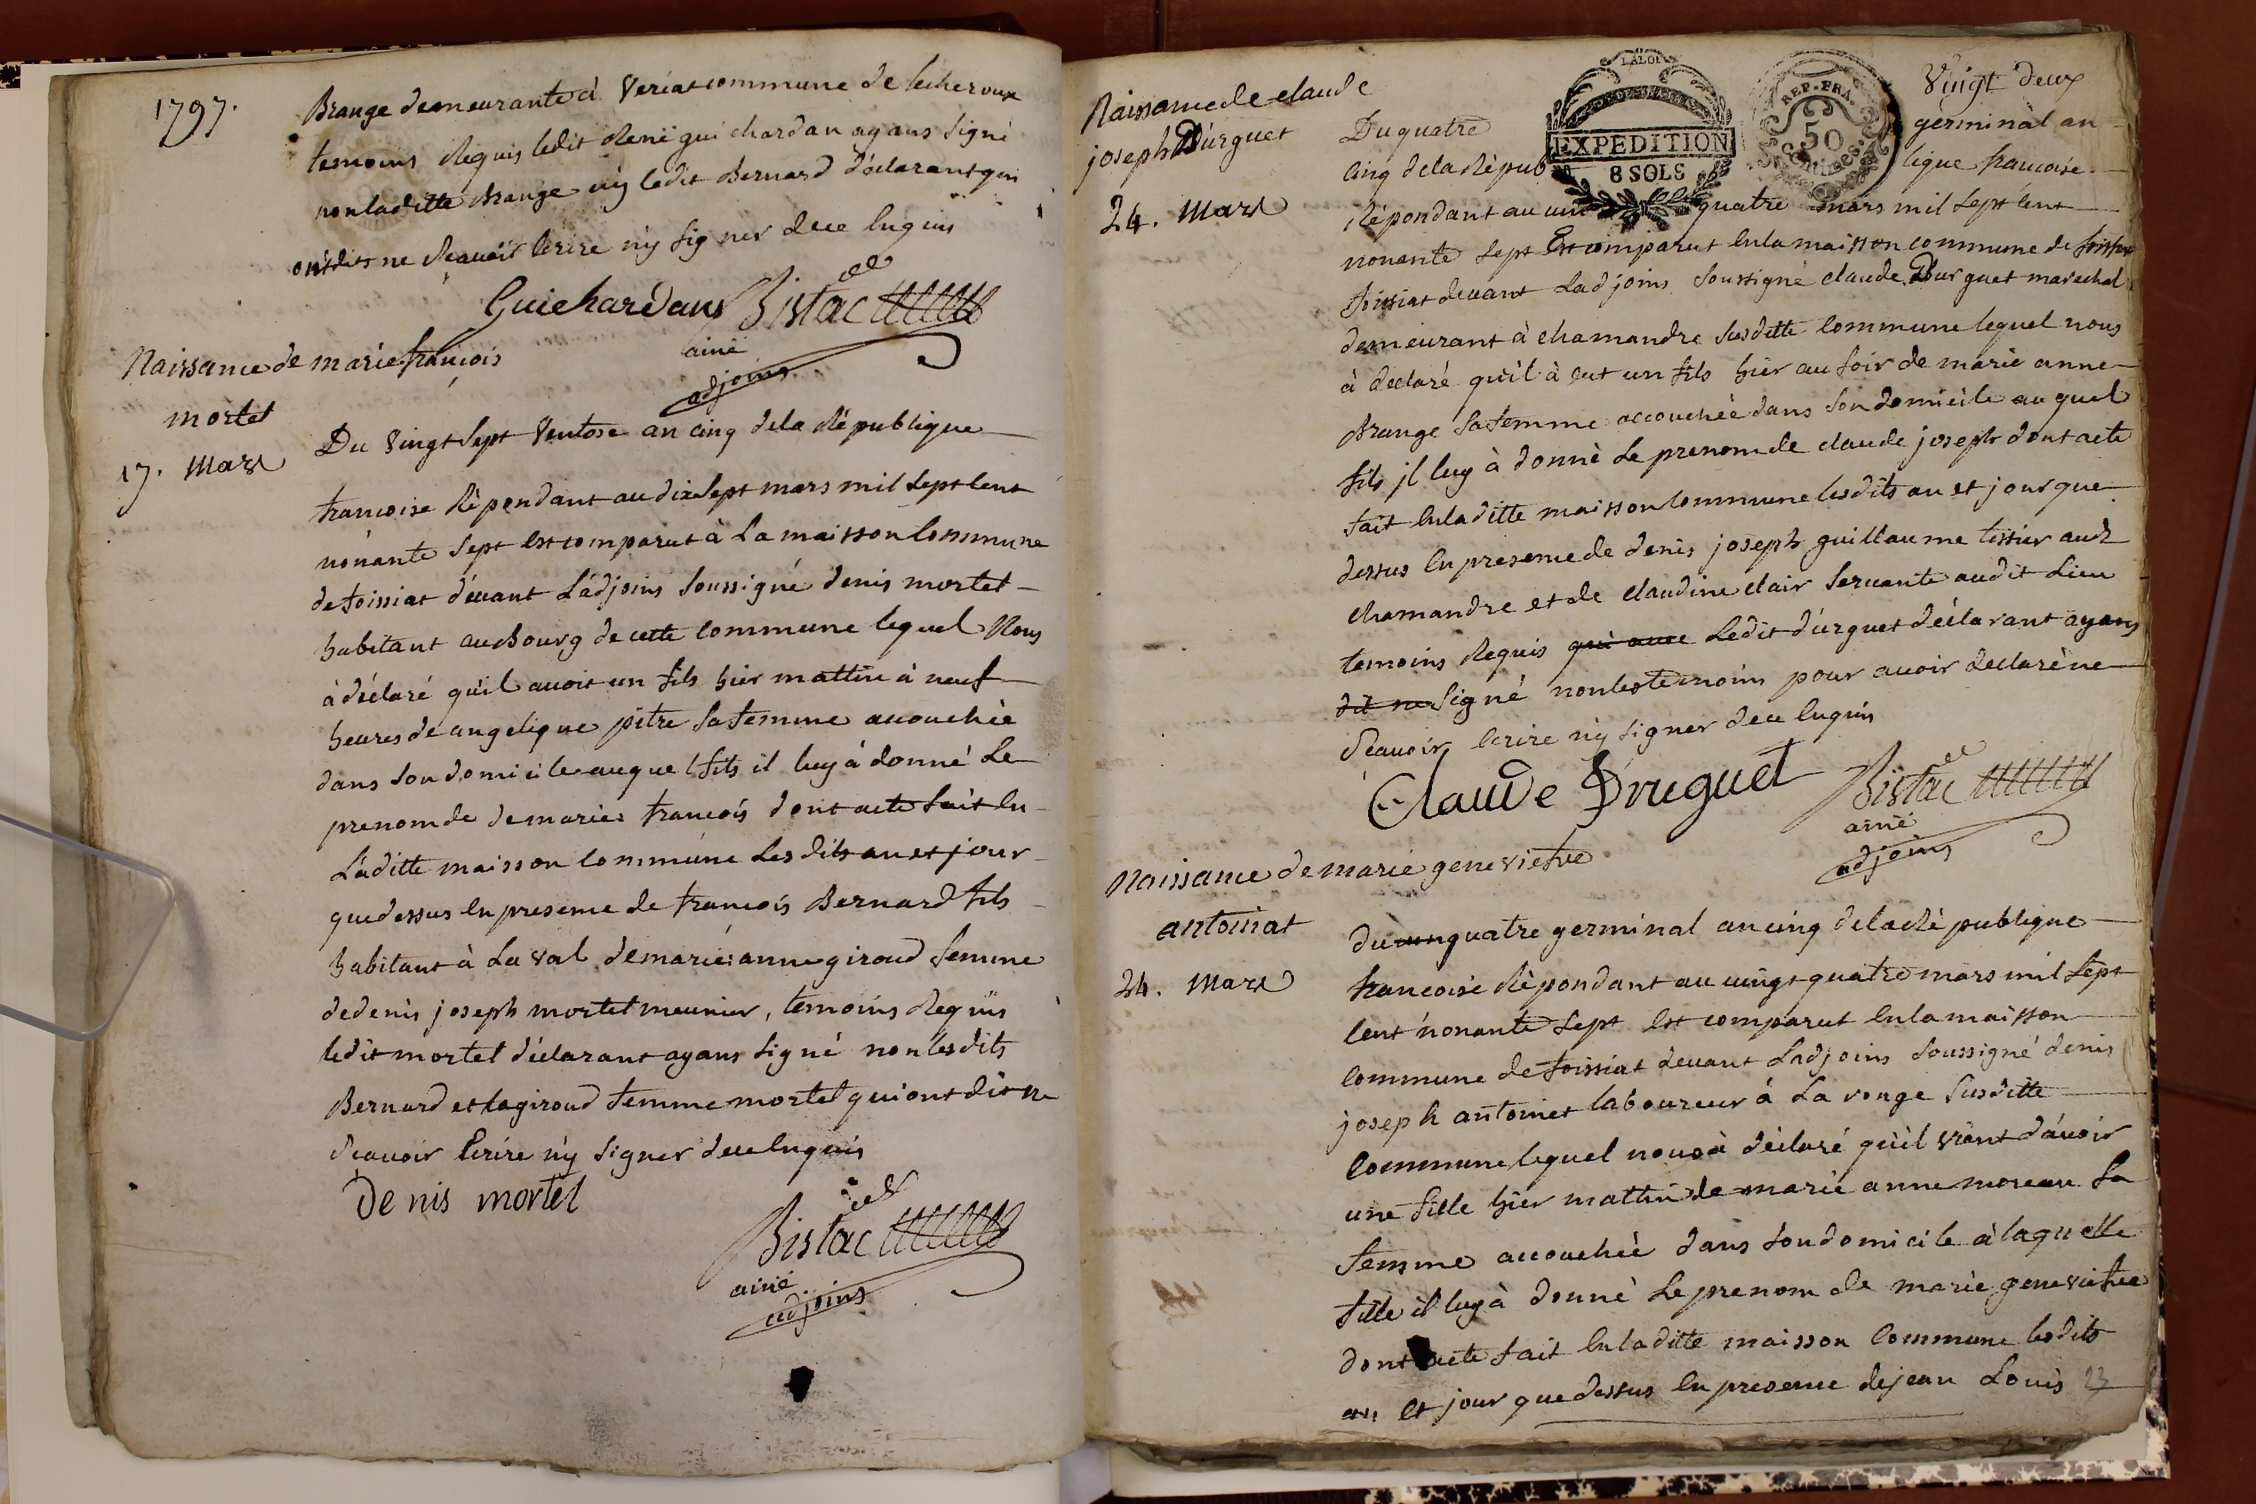 1797.
Brange demeurante à veriat commune de lecheroux
temoins Requis ledit René guichardan ayans signé
non laditte Brange ny ledit Bernard déclarant qui
ont dits ne scavoir Ecrire ny signer de ce Enquis
Guichardans Bistac
ainé
adjoins
Naissance de marie françois
mortel
17. Mars
Du vingt sept ventose an cinq de la République
francoise Répondant au dix sept mars mil sept cent
nonante sept Est comparut à La maisson Commune
de foissiat dévant L'adjoins soussigné denis mortel
habitant au Bourg de cette commune lequel Nous
à déclaré qu'il avoit un fils hier mattin à neuf
heures de angelique pitre sa femme accouchée
dans son domicile auquel fils il luy à donné Le
prenom de de marie francois dont acte fait En
Laditte maisson Commune Lesdits an et jour
que dessus En presence de francois Bernard fils
habitant à Laval de marie anne giroud femme
de denis joseph mortel meunier, temoins Requis
ledit mortel déclarant ayans signé non lesdits
Bernard et la giroud femme mortel qui ont dit ne
scavoir Ecrire ny signer de ce Enquis
Denis mortel
Bistac
ainé
adjoins
Vingt deux
Naissance de claude
joseph Durguet
24. Mars
LA LOI
EXPEDITION
8 SOLS
REP. FRA.
50
Centimes.
Du quatre germinal an
cinq de la Répub lique francoise
Répondant au quatre mars mil sept cent
nonante sept Est comparut En la maisson commune de
foissiat devant Ladjoins soussigné claude Durguet marechal
demeurant à chamandre susditte Commune lequel nous
à declaré qu'il à eut un fils hier au soir de marie anne
Brange sa femme accouchée dans son domicile auquel
fils jl luy à donné Le prenom de claude joseph dont acte
fait En laditte maisson Commune lesdits an et jour que
dessus En presence de denis joseph guillaume tissier aud
chamandre et de claudine clair servante audit Lieu
temoins Requis qui avec Ledit durguet déclarant ayans
dit ne signé non les temoins pour avoir declaré ne
scavoir Ecrire ny signer de ce Enquis
Claude Druguet Bistac
ainé
adjoins
Naissance de marie genevietve
antoinat
24. Mars
du quatre germinal an cinq de la République
francoise Répondant au vingt quatre mars mil sept
Cent nonante sept Est comparut En la maisson
Commune de foissiat devant Ladjoins soussigné denis
joseph antoinet laboureur à La ronge susditte
Commune lequel nous à déclaré qu'il vient d'avoir
une fille hier mattin de marie anne moreau sa
femme accouchée dans son domicile à laquelle
fille il luy à donné Le prenom de marie genevietve
dont acte fait En laditte maisson Commune lesdits
an Et jour que dessus En presence de jean Louis
23